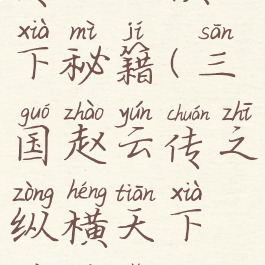 xià mì jí sān
下秘籍(三
guó zhào yún chuán zhī
国赵云传之
zòng héng tiān xià
纵横天下